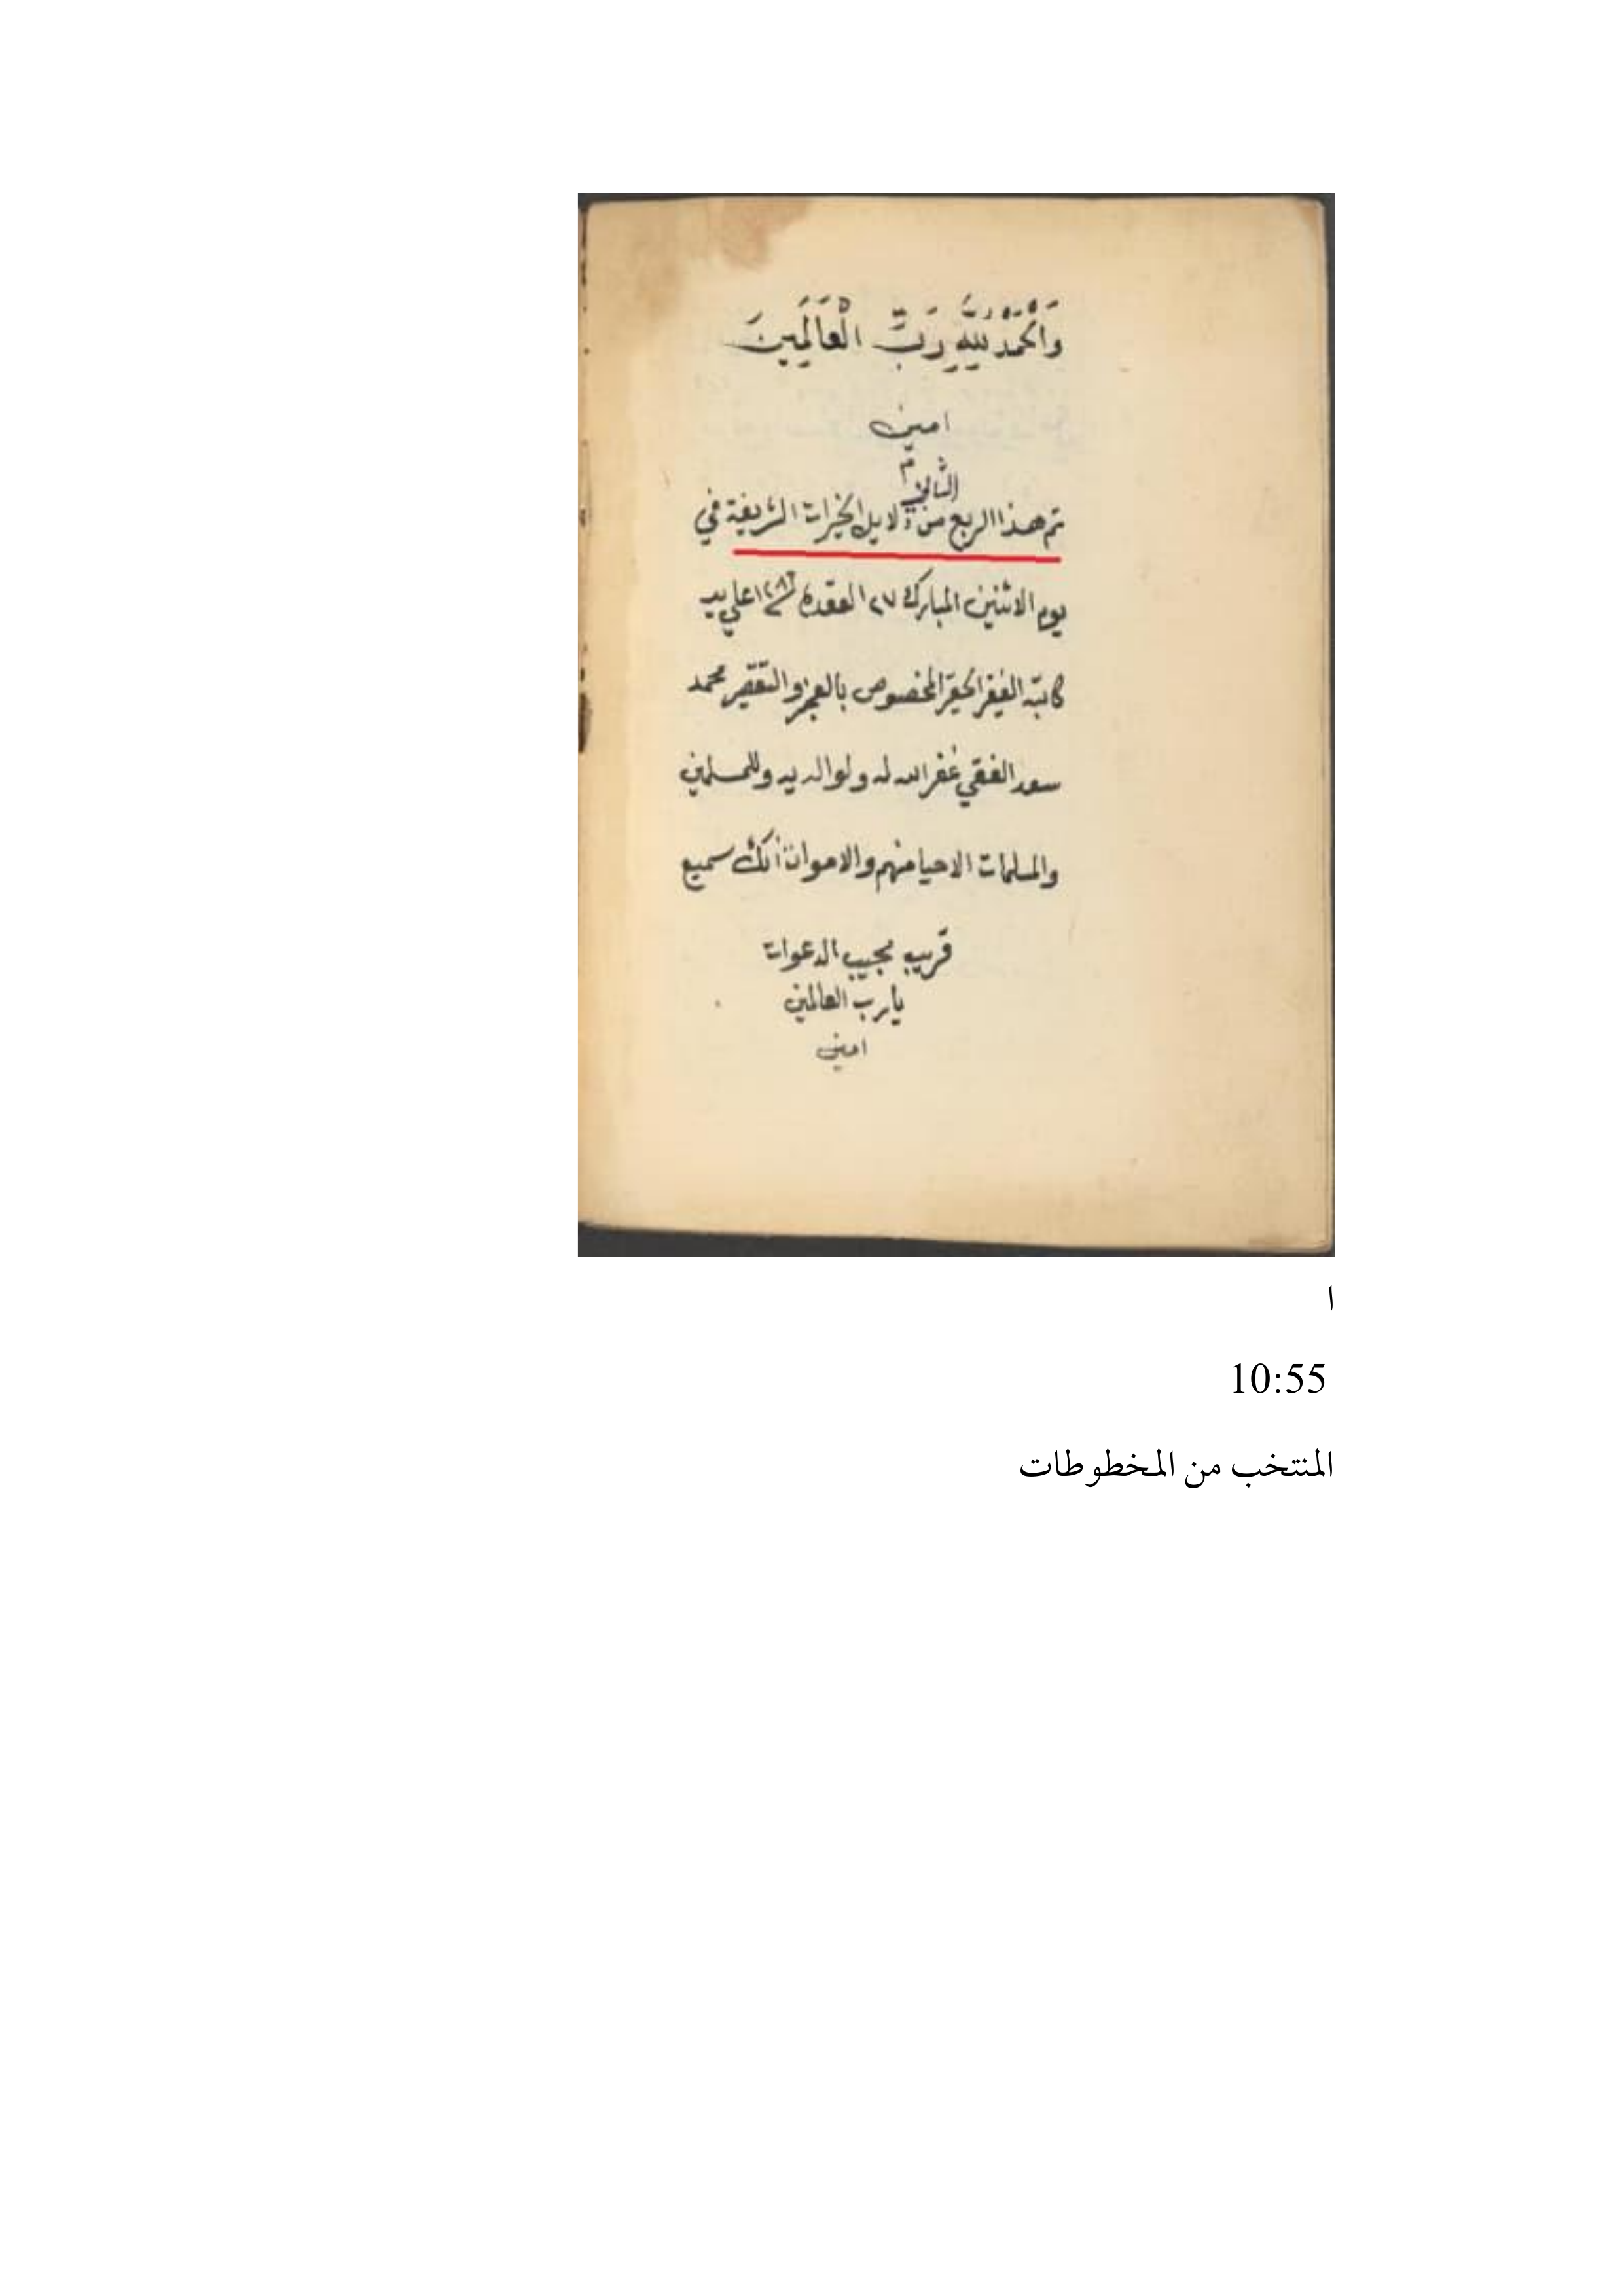 وَالْحَمْدُ لِلَّهِ رَبِّ الْعَالَمِينَ
امين
تم هذا الربع من دلايل الخيرات الشريفة في
يوم الاثنين المبارك ٢٧ القعدة على يد
كاتبه الفقير الحقير المخصوص بالعجز والتقصير محمد
سعد الفقي غفر الله له ولوالديه وللمسلمين
والمسلمات الاحيا منهم والاموات انك سميع
قريب مجيب الدعوات
يارب العالمين
امين
ا
10:55
المنتخب من المخطوطات